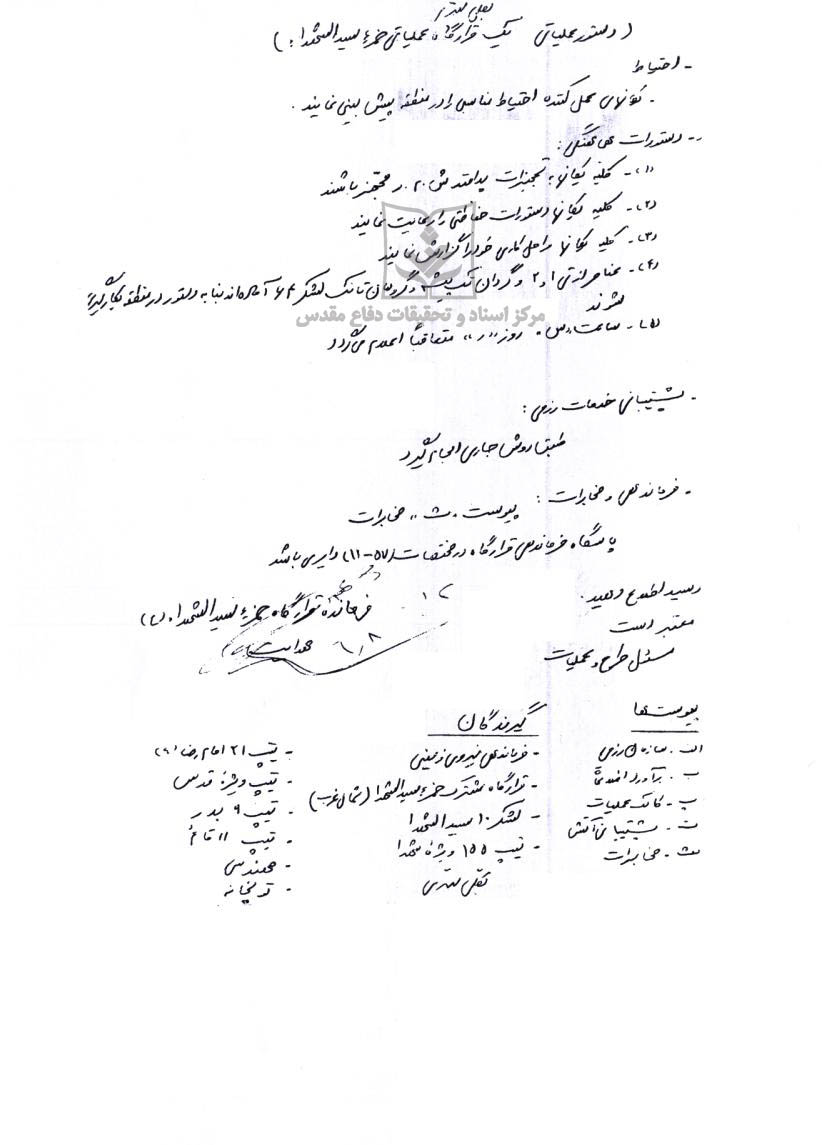 بقلی سری
(دستور عملیاتی یک قرارگاه عملیاتی حمزه سیدالشهدا)
- احتیاط
- یگانهای عمل کننده احتیاط مناسبی را در منطقه پیش بینی نمایند.
- دستورات هماهنگی:
(۱)- کلیه یگانها به تجهیزات پدافند ش.م.ر مجهز باشند
(۲)- کلیه یگانها دستورات حفاظتی را رعایت نمایند
(۳)- کلیه یگانها مراحل کاری خود را گزارش نمایند
(۴)- عناصر از تی ۱ و ۲ و گردان تک تیپ ۳ و گردان تانک لشکر ۶۴ آماده اند بنا به دستور در منطقه بکارگیری
شوند
(۵)- ساعت "س" روز "ر" متعاقباً اعلام می‌گردد
مرکز اسناد و تحقیقات دفاع مقدس
- پشتیبانی خدمات رزمی:
طبق روش جاری انجام گیرد
- فرماندهی و مخابرات: پیوست "ث" مخابرات
پاسگاه فرماندهی قرارگاه در مختصات (۵۷-۱۱) دایر می باشد
رسید اطلاع دهید.
فرمانده قرارگاه حمزه سیدالشهداء (ع)
معتبر است
هدایت
مسئول طرح و عملیات
پیوست‌ها
الف- سازمان رزمی
ب- برآورد اطلاعات
پ- کالک عملیات
ت- پشتیبانی آتش
ث- مخابرات
گیرندگان
- فرماندهی نیروی زمینی
- قرارگاه مشترک حمزه سیدالشهدا (شمال غرب)
- لشکر ۱۰ سیدالشهدا
- تیپ ۱۵۵ ویژه شهدا
بقلی سری
- تیپ ۲۱ امام رضا (ع)
- تیپ ویژه قدس
- تیپ ۹ بدر
- تیپ ۱۱ قائم
- مهندسی
- توپخانه